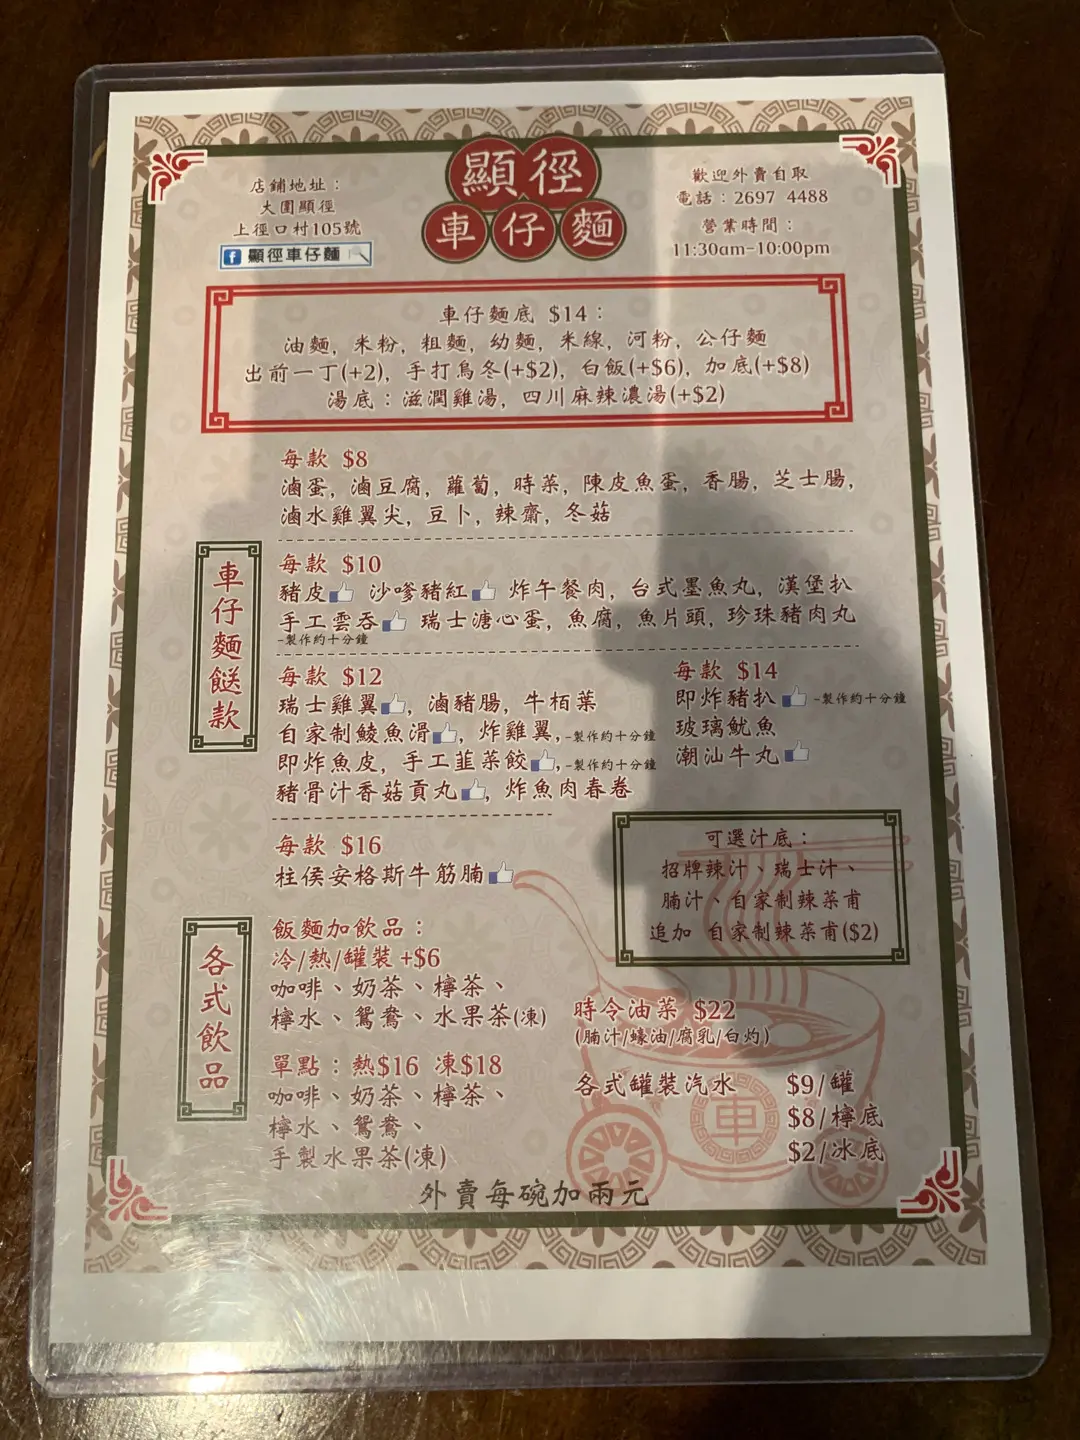 顯徑
車仔麵
店鋪地址：
大圍顯徑
上徑口村105號
f 顯徑車仔麵
歡迎外賣自取
電話：2697 4488
營業時間：
11:30am-10:00pm
車仔麵底 $14：
油麵, 米粉, 粗麵, 幼麵, 米線, 河粉, 公仔麵
出前一丁(+2), 手打烏冬(+$2), 白飯(+$6), 加底(+$8)
湯底：滋潤雞湯, 四川麻辣濃湯(+$2)
車仔麵餸款
每款 $8
滷蛋, 滷豆腐, 蘿蔔, 時菜, 陳皮魚蛋, 香腸, 芝士腸,
滷水雞翼尖, 豆卜, 辣齋, 冬菇
每款 $10
豬皮 沙嗲豬紅 炸午餐肉, 台式墨魚丸, 漢堡扒
手工雲吞 瑞士溏心蛋, 魚腐, 魚片頭, 珍珠豬肉丸
-製作約十分鐘
每款 $12
瑞士雞翼, 滷豬腸, 牛栢葉
自家制鯪魚滑, 炸雞翼, -製作約十分鐘
即炸魚皮, 手工韮菜餃, -製作約十分鐘
豬骨汁香菇貢丸, 炸魚肉春卷
每款 $14
即炸豬扒 -製作約十分鐘
玻璃魷魚
潮汕牛丸
每款 $16
柱侯安格斯牛筋腩
可選汁底：
招牌辣汁、瑞士汁、
腩汁、自家制辣菜甫
追加 自家制辣菜甫($2)
各式飲品
飯麵加飲品：
冷/熱/罐裝 +$6
咖啡、奶茶、檸茶、
檸水、鴛鴦、水果茶(凍)
單點：熱$16 凍$18
咖啡、奶茶、檸茶、
檸水、鴛鴦、
手製水果茶(凍)
時令油菜 $22
(腩汁/蠔油/腐乳/白灼)
各式罐裝汽水 $9/罐
$8/檸底
$2/冰底
車
外賣每碗加兩元